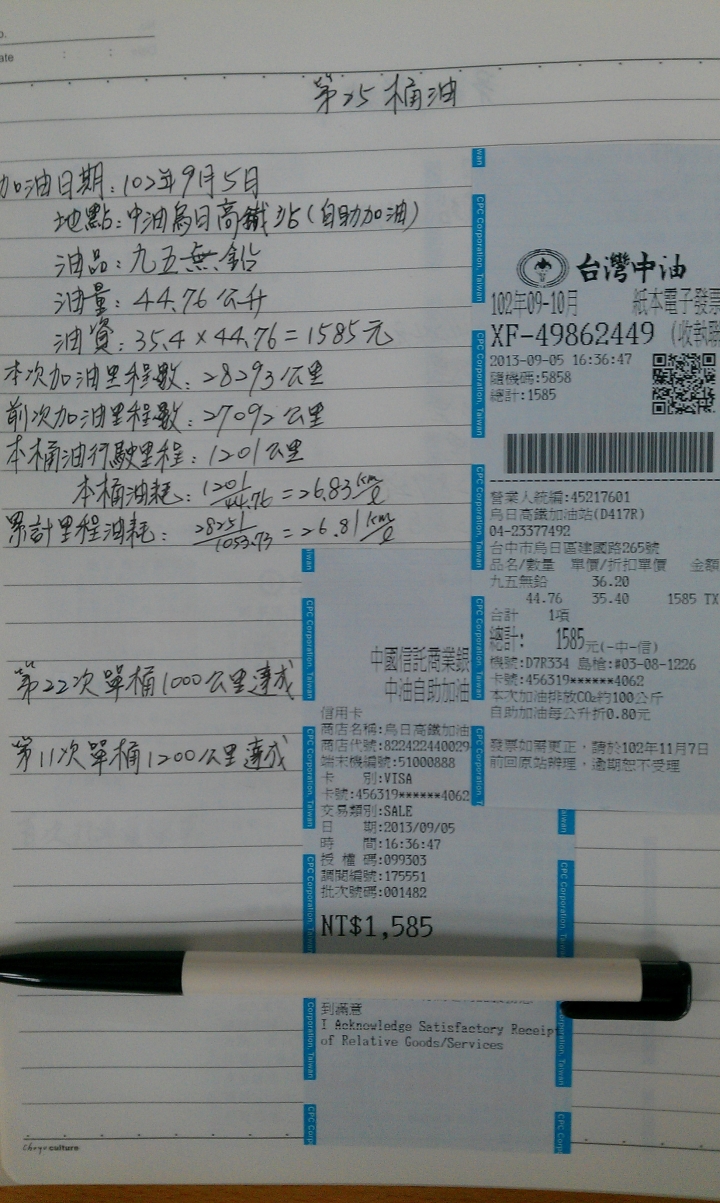 第25桶油
加油日期:102年9月5日
地點:中油烏日高鐵站(自助加油)
油品:九五無鉛
油量:44.76公升
油資:35.4×44.76=1585元
本次加油里程數:28293公里
前次加油里程數:27092公里
本桶油行駛里程:1201公里
本桶油耗:1201/44.76=26.83km/ℓ
累計里程油耗:28251/1053.73=26.81km/ℓ
第22次單桶1000公里達成
第11次單桶1200公里達成
台灣中油
102年09-10月 紙本電子發票
XF-49862449 (收執聯
2013-09-05 16:36:47
隨機碼:5858
總計:1585
營業人統編:45217601
烏日高鐵加油站(D417R)
04-23377492
台中市烏日區建國路265號
品名/數量 單價/折扣單價 金額
九五無鉛 36.20
44.76 35.40 1585 TX
合計 1項
總計: 1585元(-中-信)
機號:D7R334 島槍:#03-08-1226
卡號:456319******4062
本次加油排放CO₂約100公斤
自助加油每公升折0.80元
發票如需更正,請於102年11月7日
前回原站辨理,逾期恕不受理
中國信託商業銀
中油自助加油
信用卡
商店名稱:烏日高鐵加油
商店代號:822422440029
端末機編號:51000888
卡 別:VISA
卡號:456319******4062
交易類別:SALE
日 期:2013/09/05
時 間:16:36:47
授權碼:099303
調閱編號:175551
批次號碼:001482
NT$1,585
到滿意
I Acknowledge Satisfactory Receip
of Relative Goods/Services
CPC Corporation, Taiwan
culture